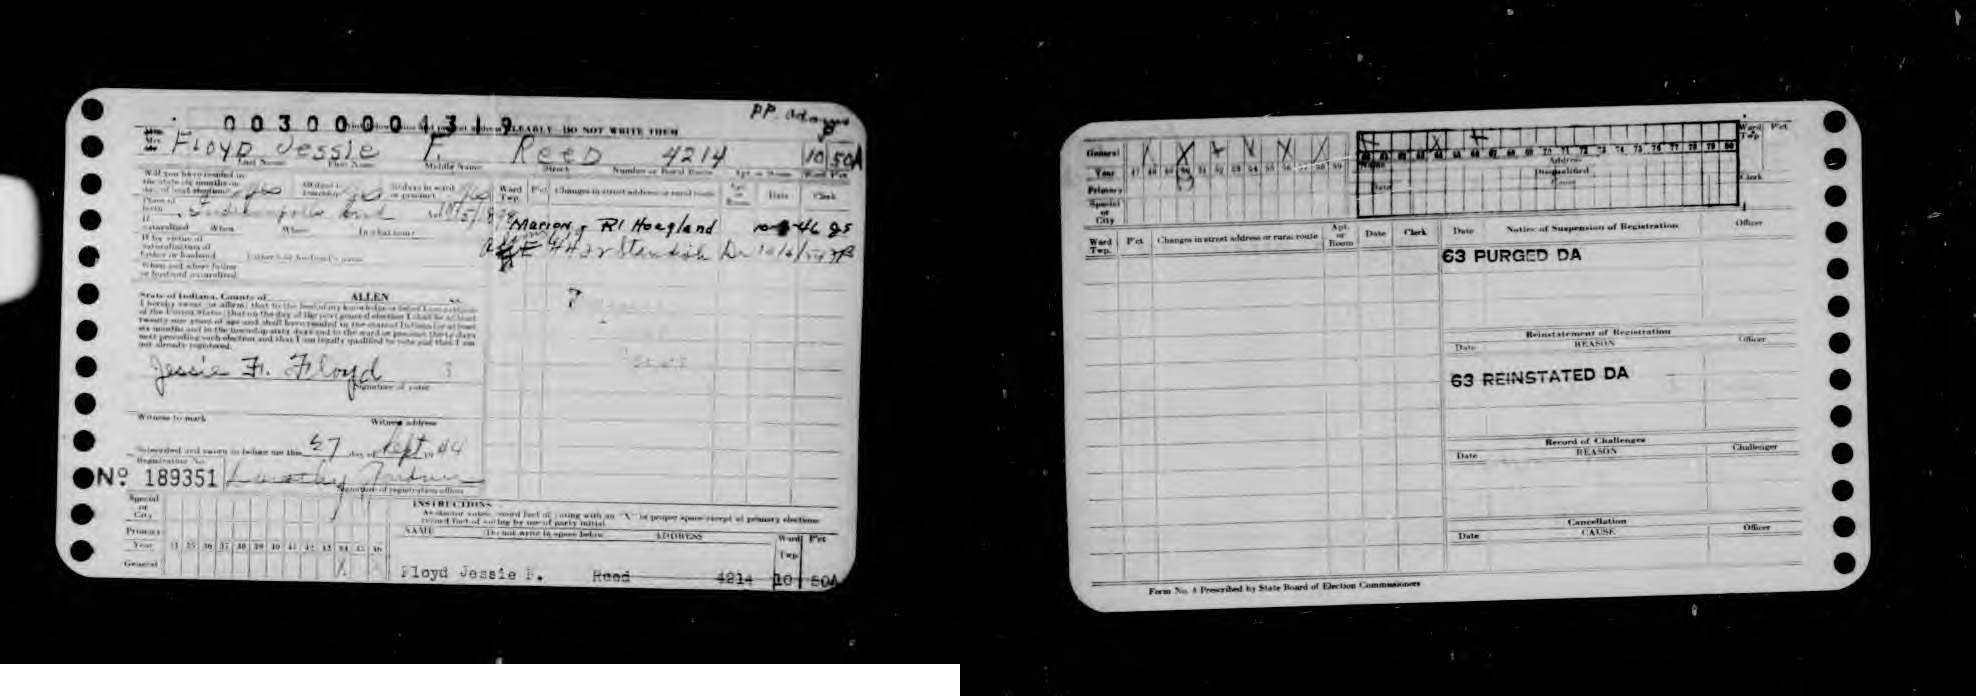 PP. Adams
003000004319
CLEARLY DO NOT WRITE THEM
Floyd Jessie F. Reed 4214 10 50A
Last Name First Name Middle Name Street Number or Rural Route Apt. or Room Ward Pct
Will you have resided in
the state six months on
day of next election? yes 60 days in township? yes 30 days in ward or precinct? yes
Ward Twp. Pct Changes in street address or rural route Apt. or Room Date Clerk
Place of birth Indianapolis Ind
Marion R1 Hoagland 46
If naturalized When Where In what court
4432 Standish Dr
If by virtue of
naturalization of
father or husband Father's or husband's name
When and where father
or husband naturalized
State of Indiana, County of ALLEN ss
I hereby swear or affirm that to the best of my knowledge or belief I am a citizen
of the United States; that on the day of the next general election I shall be at least
twenty-one years of age and shall have resided in the state of Indiana for at least
six months and in the township sixty days and in the ward or precinct thirty days
next preceding such election and that I am legally qualified to vote and that I am
not already registered.
?
Jessie F. Floyd
Signature of voter
Witness to mark Witness address
Subscribed and sworn to before me this 27 day of Sept 1944
Registration No.
No 189351 Dorothy Gardner
Signature of registration officer
Special or City
Primary
Year 34 35 36 37 38 39 40 41 42 43 44 45 46
General X
INSTRUCTIONS
As elector votes, record fact of voting with an "X" in proper space except at primary elections
record fact of voting by use of party initial
NAME Do not write in space below ADDRESS Ward Twp. Pct
Floyd Jessie F. Reed 4214 10 50A
General X X X X X X X
Year 47 48 49 50 51 52 53 54 55 56 57 58 59
Primary
Special or City
60 61 62 63 64 65 66 67 68 69 70 71 72 73 74 75 76 77 78 79 80
Ward Twp. Pct
Name Address
Disqualified
Date Cause Clerk
Ward Twp. Pct Changes in street address or rural route Apt. or Room Date Clerk
Date Notice of Suspension of Registration Officer
63 PURGED DA
Reinstatement of Registration
Date REASON Officer
63 REINSTATED DA
Record of Challenges
Date REASON Challenger
Cancellation
Date CAUSE Officer
Form No. 4 Prescribed by State Board of Election Commissioners